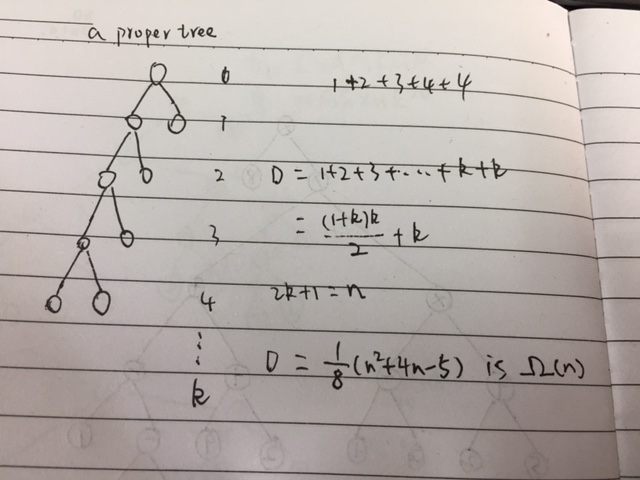 a proper tree
0
1+2+3+4+4
1
2
D = 1+2+3+.....+k+k
= (1+k)k/2 + k
3
2k+1=n
4
⋮
k
D = 1/8(n²+4n-5) is Ω(n)